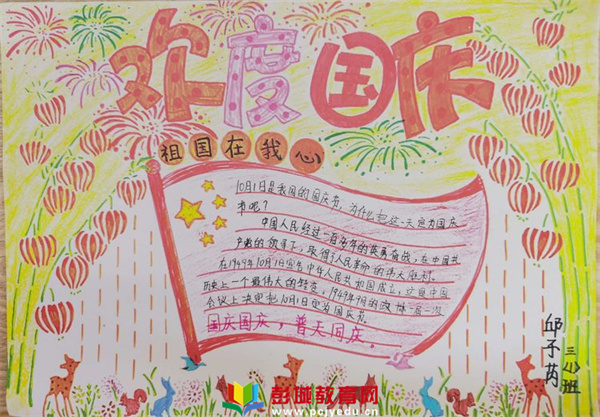 欢度国庆
祖国在我心
10月1日是我国的国庆节,为什么把这一天定为国庆
节呢?
中国人民经过一百多年的英勇奋战,在中国共
产党的领导下,取得了人民革命的伟大胜利。
在1949年10月1日宣告中华人民共和国成立,这是中国
历史上一个最伟大的转变,1949年9月的政协一届一次
会议上决定把10月1日定为国庆节。
国庆国庆,普天同庆。
邱子芮
三(2)班
彭珊教育网
www.pcjyedu.cn